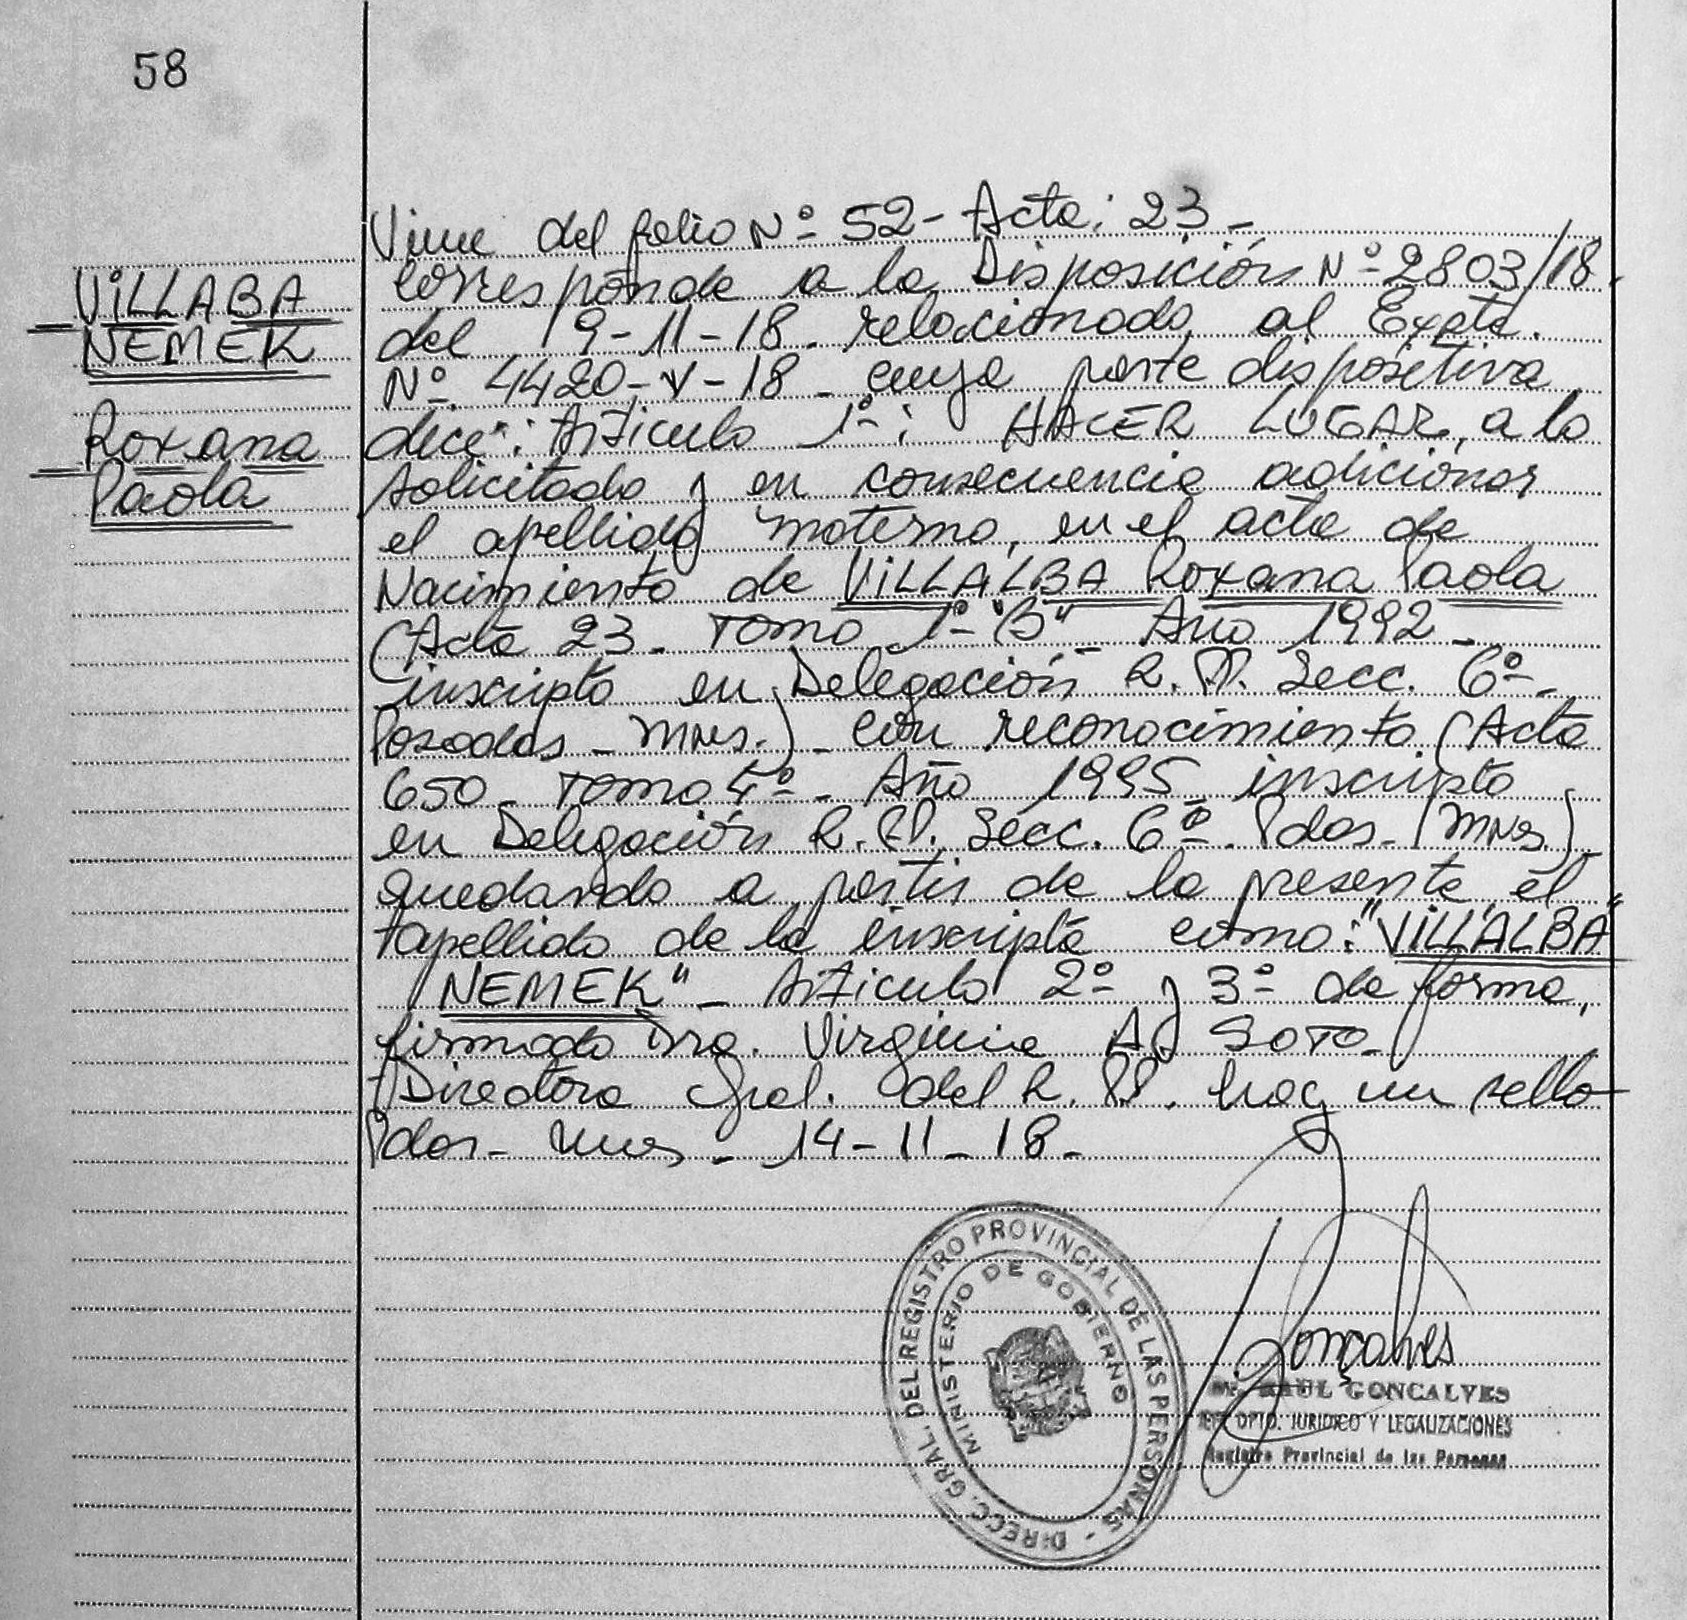 58
VILLABA
NEMEK
Roxana
Paola
Viene del folio Nº 52- Acta: 23-
Corresponde a la Disposición Nº 2803/18.
del 19-11-18. relacionado al Expte.
Nº 4420-V-18- cuya parte dispositiva
dice": Artículo 1º: HACER LUGAR, a lo
solicitado y en consecuencia adicionar
el apellido materno, en el acta de
Nacimiento de VILLALBA Roxana Paola
(Acta 23- Tomo 1º "B" - Año 1992-
inscripta en Delegación R.P. Secc. 6º-
Posadas - Mnes.)- con reconocimiento (Acta
650- Tomo 4º- Año 1995- inscripto
en Delegación R.P. Secc. 6º. Pdas- (Mnes)
quedando a partir de la presente el
apellido de la inscripta como: "VILLALBA
NEMEK"- Artículo 2º y 3º de forma,
firmado Dra. Virginia A. SOTO-
Directora Gral. del R.P. hay un sello
Pdas- Mnes - 14-11-18-
DIRECC. GRAL. DEL REGISTRO PROVINCIAL DE LAS PERSONAS -
MINISTERIO DE GOBIERNO
Gonçalves
RAUL GONCALVES
DPTO. JURIDICO Y LEGALIZACIONES
Registro Provincial de las Personas